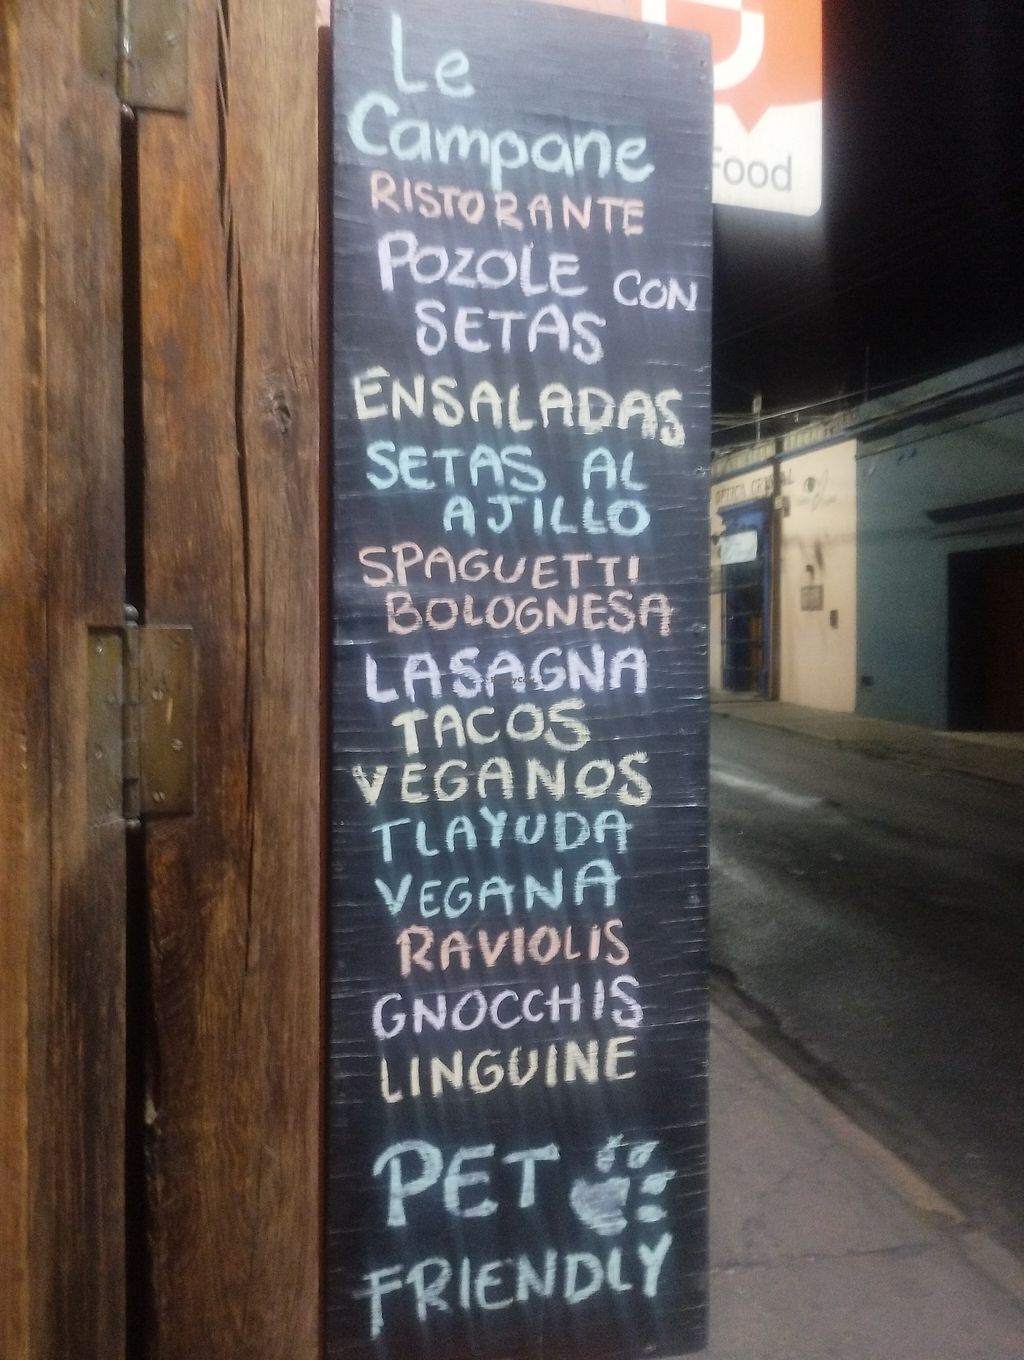 Le
Campane
RISTORANTE
POZOLE CON
SETAS
ENSALADAS
SETAS AL
AJILLO
SPAGUETTI
BOLOGNESA
LASAGNA
TACOS
VEGANOS
TLAYUDA
VEGANA
RAVIOLIS
GNOCCHIS
LINGUINE
PET
FRIENDLY
Food